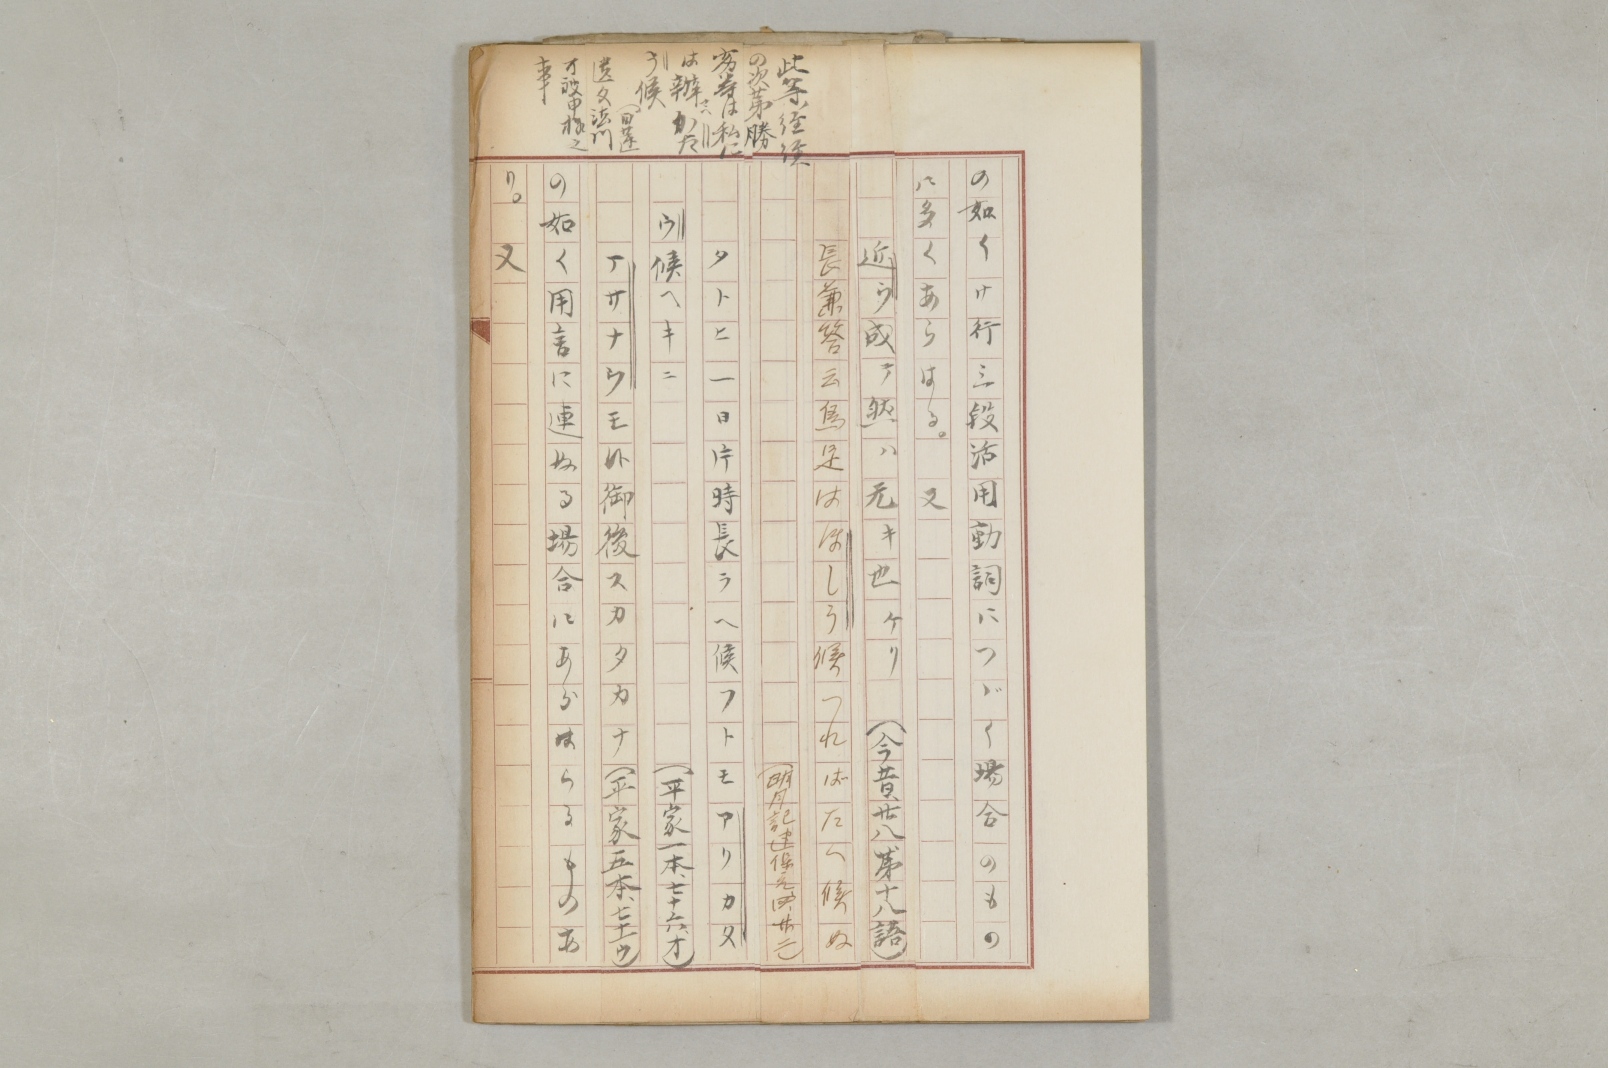 此等ノ経経
の次第勝
劣等は私に
は辨へかた
う候
(日蓮
遺文法門
可被申様之
事
の如くサ行三段活用動詞につゞく場合のもの
に多くあらはる。又
近ウ成テ然ハ无キ也ケリ(今昔、廿八、第十八語)
長兼答云馬足はほしう候つればたへ候ぬ
(明月記建保元、四、廿二)
タトヒ一日片時長ラヘ候フトモアリカタ
ウ候ヘキニ(平家一本、七十六、オ)
アサナウモ外御後スカタカナ(平家五本、七十、ウ)
の如く用言に連ぬる場合にあらはらるものあ
り。又